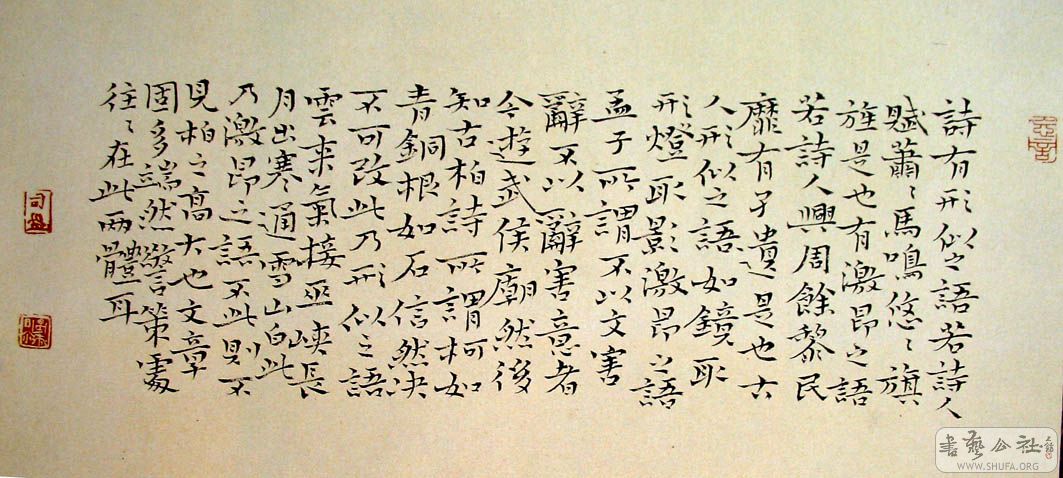 詩有形似之語若詩人
賦蕭〻馬鳴悠〻旗
旌是也有激昂之語
若詩人興周餘黎民
靡有孑遺是也古
人形似之語如鏡取
形燈取影激昂之語
孟子所謂不以文害
辭不以辭害意者
今遊武侯廟然後
知古柏詩所謂柯如
青銅根如石信然决
不可改此乃形似之語
雲来氣接巫峽長
月出寒通雪山白此
乃激昂之語不此則不
見柏之高大也文章
固多端然警策處
往〻在此兩體耳
書藝公社
WWW.SHUFA.ORG